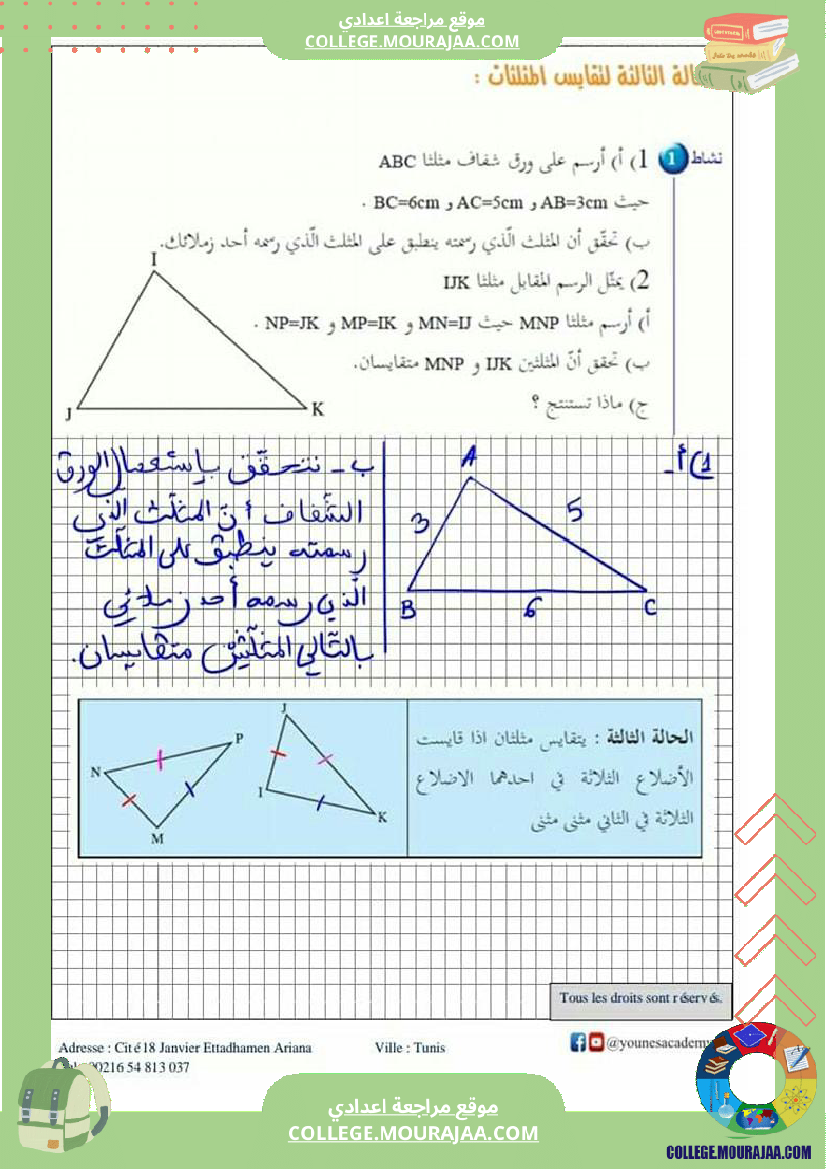 موقع مراجعة اعدادي
COLLEGE.MOURAJAA.COM
الثالثة لتقايس المثلثات :
نشاط 1
1) أ) أرسم على ورق شفاف مثلثا ABC
حيث AB=3cm و AC=5cm و BC=6cm .
ب) تحقّق أن المثلث الّذي رسمته ينطبق على المثلث الّذي رسمه أحد زملائك.
2) يمثّل الرسم المقابل مثلثا IJK
أ) أرسم مثلثا MNP حيث MN=IJ و MP=IK و NP=JK .
ب) تحقق أنّ المثلثين IJK و MNP متقايسان.
ج) ماذا تستنتج ؟
I
J
K
1) أ-
A
3
5
B
6
C
ب - نتحقّق بإستعمال الورق
الشّفاف أنّ المثلّث الذي
رسمته ينطبق على المثلّث
الّذي رسمه أحد زملائي
بالتّالي المثلّثين متقايسان.
الحالة الثالثة : يتقايس مثلثان اذا قايست
الأضلاع الثلاثة في احدهما الاضلاع
الثلاثة في الثاني مثنى مثنى
J
P
N
I
K
M
Tous les droits sont réservés.
Adresse : Cité 18 Janvier Ettadhamen Ariana
Ville : Tunis
@younesacademy
00216 54 813 037
موقع مراجعة اعدادي
COLLEGE.MOURAJAA.COM
COLLEGE.MOURAJAA.COM